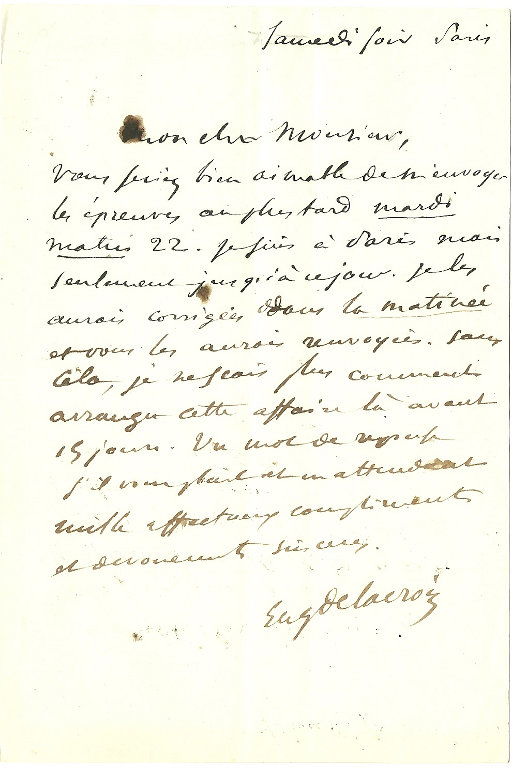 Samedi soir Paris
mon cher Monsieur,
vous seriez bien aimable de m'envoyer
les épreuves au plus tard mardi
matin 22. je suis à Paris mais
seulement jusqu'à ce jour. je les
aurais corrigées dans la matinée
et vous les aurais renvoyées. sans
cela, je ne scais plus comment
arranger cette affaire là avant
15 jours. Un mot de réponse
s'il vous plait et en attendant
mille affectueux compliments
et dévouements sincères.
Eug Delacroix